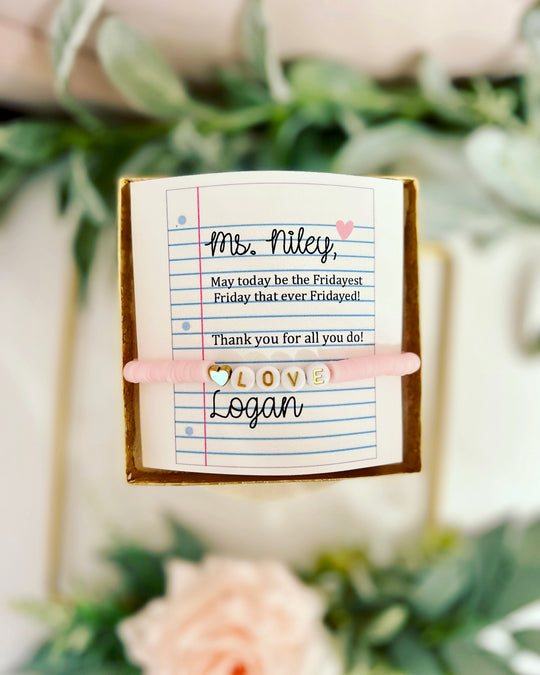 Ms. Niley,
May today be the Fridayest
Friday that ever Fridayed!
Thank you for all you do!
LOVE
Logan